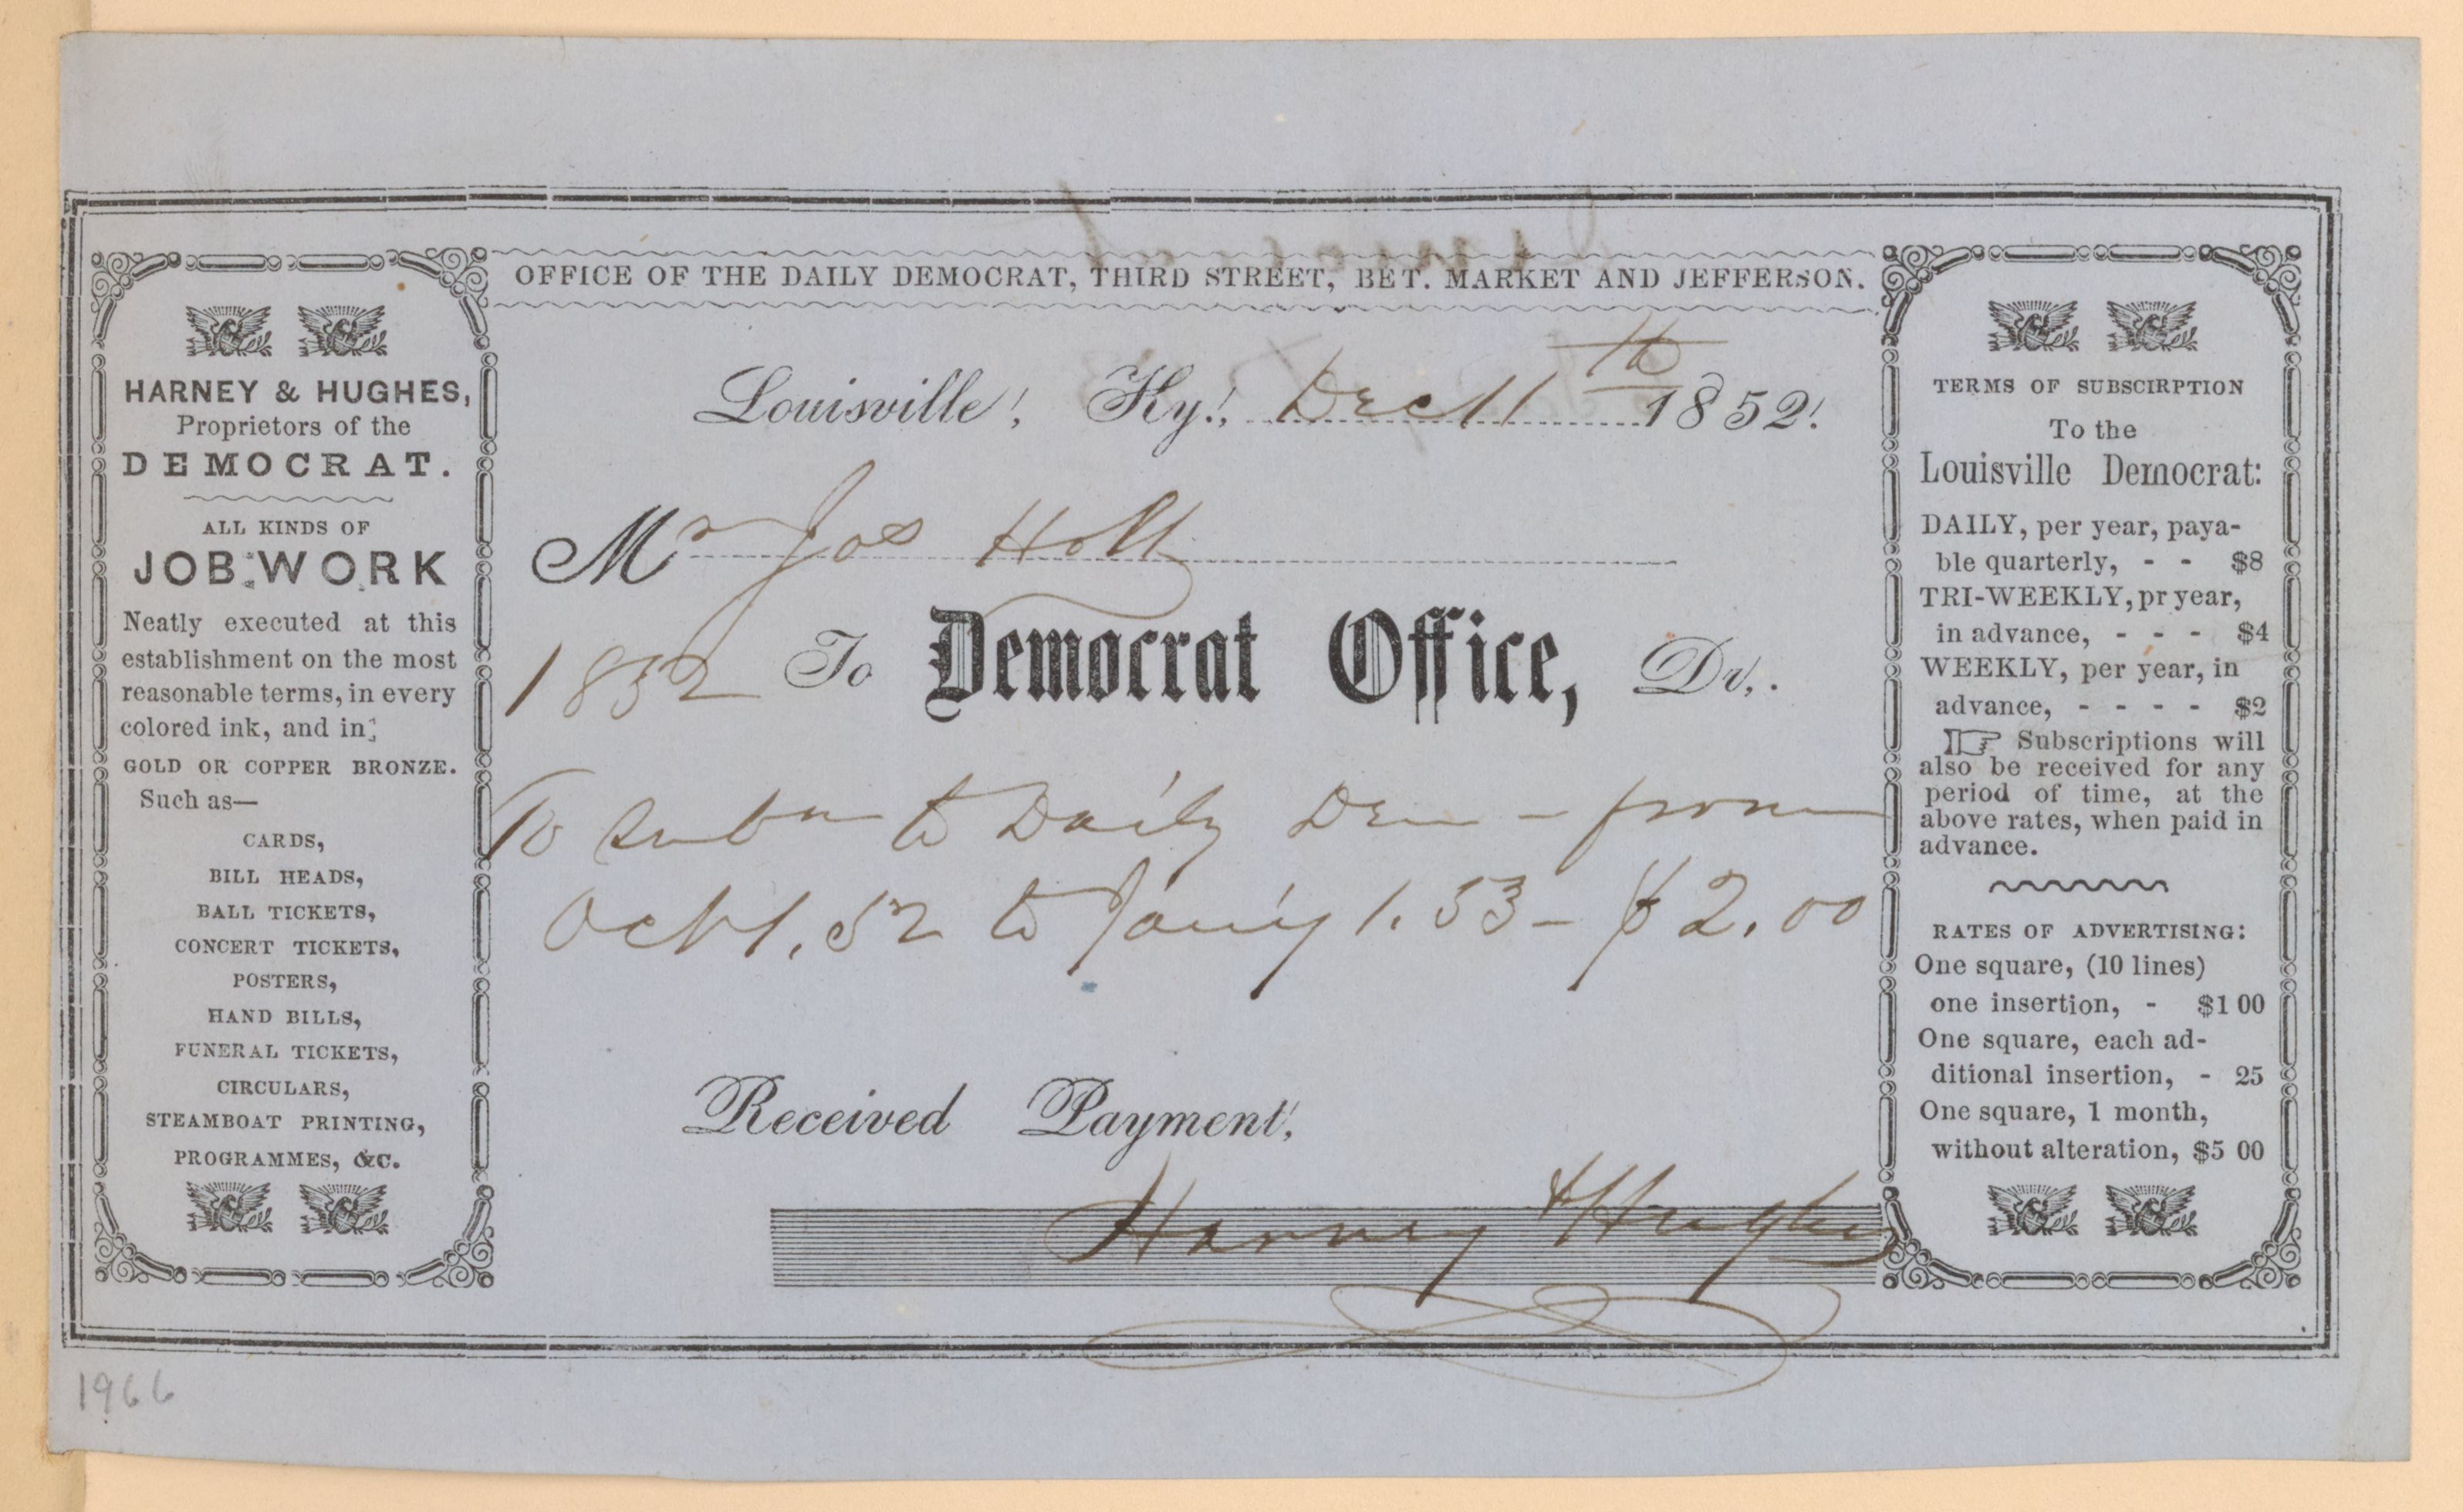 OFFICE OF THE DAILY DEMOCRAT, THIRD STREET, BET. MARKET AND JEFFERSON.
HARNEY & HUGHES,
Proprietors of the
DEMOCRAT.
ALL KINDS OF
JOB WORK
Neatly executed at this
establishment on the most
reasonable terms, in every
colored ink, and in
GOLD OR COPPER BRONZE.
Such as—
CARDS,
BILL HEADS,
BALL TICKETS,
CONCERT TICKETS,
POSTERS,
HAND BILLS,
FUNERAL TICKETS,
CIRCULARS,
STEAMBOAT PRINTING,
PROGRAMMES, &C.
Louisville, Ky., Dec 11th 1852.
Mr Jos Holt
1852 To Democrat Office, Dr.
To Subn to Daily Dem - from
Oct 1, 52 to Jany 1. 53 - $2.00
Received Payment,
Harney & Hughes
TERMS OF SUBSCIRPTION
To the
Louisville Democrat:
DAILY, per year, paya-
ble quarterly, - - $8
TRI-WEEKLY, pr year,
in advance, - - - $4
WEEKLY, per year, in
advance, - - - - $2
☞ Subscriptions will
also be received for any
period of time, at the
above rates, when paid in
advance.
RATES OF ADVERTISING:
One square, (10 lines)
one insertion, - $1 00
One square, each ad-
ditional insertion, - 25
One square, 1 month,
without alteration, $5 00
1966